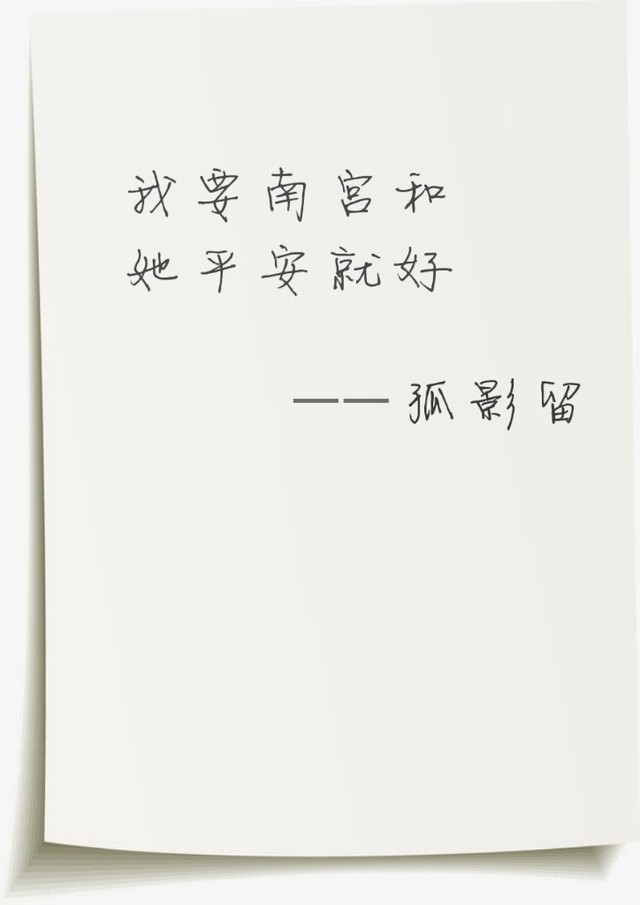 我要南宫和
她平安就好
——孤影留